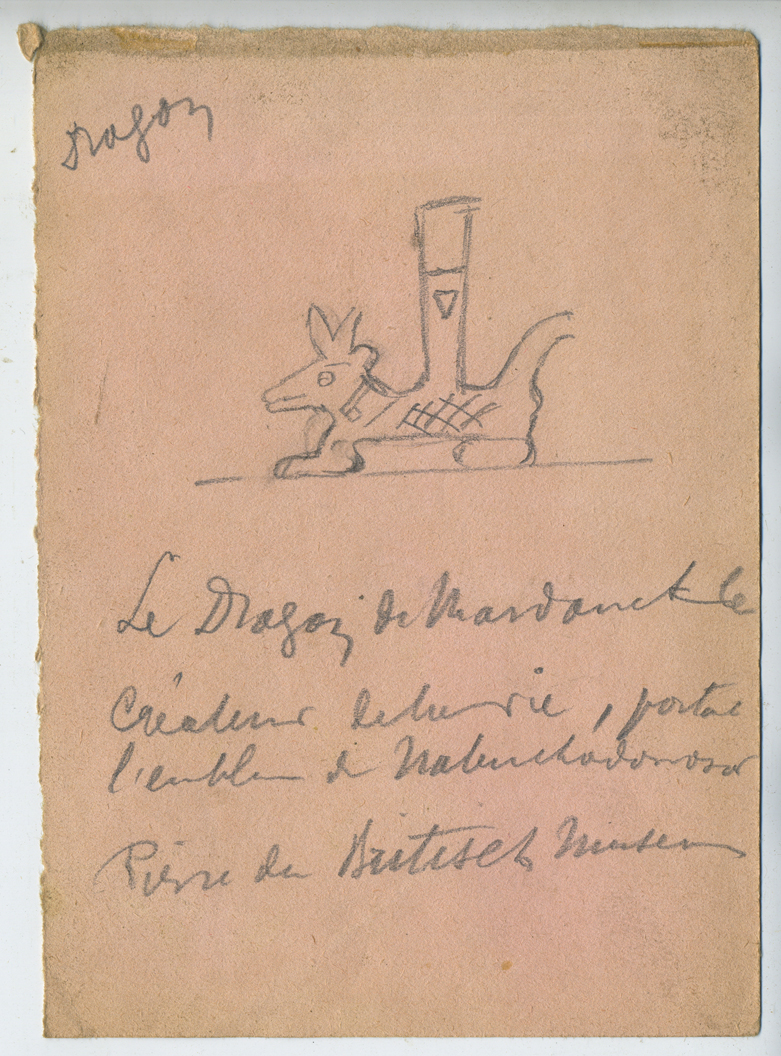 Dragon
Le Dragon de Mardouck le
Créateur de la vie, portant
l'emblem de Nabuchodonosor
Pierre du Britisch Museum